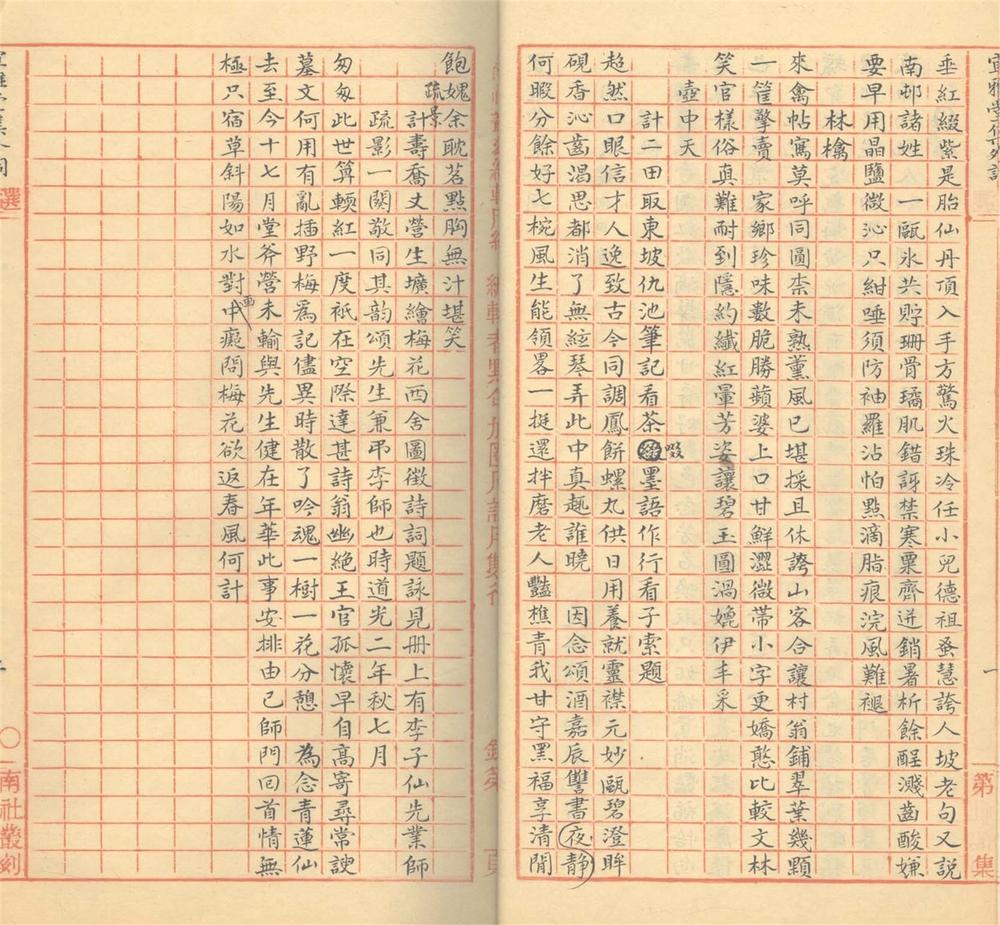 垂紅綴紫是胎仙丹頂入手方驚火珠冷任小兒德祖蚤慧誇人坡老句又說
南邨諸姓一甌氷共貯珊骨璚肌錯訝禁寒粟齊迸銷暑析餘酲濺齒酸嫌
耍早用晶鹽微沁只紺唾須防袖羅沾怕點滴脂痕浣風難褪
林檎
來禽帖寫莫呼同圖柰未熟薰風已堪採且休誇山客合讓村翁鋪翠葉幾顆
一筐擎賣家鄉珍味數脆勝蘋婆上口甘鮮澀微帶小字更嬌憨比較文林
笑官樣俗真難耐到隱約纖紅暈芳姿讓碧玉圓渦媲伊丰采
壺中天
計二田取東坡仇池筆記看茶啜墨語作行看子索題
超然口眼信才人逸致古今同調鳳餅螺丸供日用養就靈襟元妙甌碧澄眸
硯香沁齒渴思都消了無絃琴弄此中真趣誰曉　因念頌酒嘉辰讐書夜靜
何暇分餘好七椀風生能領畧一挺還拌磨老人豔樵青我甘守黑福享清閒
飽媿余耽茗點胸無汁堪笑
疏景
計壽喬丈營生壙繪梅花西舍圖徵詩詞題詠見冊上有李子仙先業師
疏影一闋敬同其韵頌先生兼弔李師也時道光二年秋七月
匆匆此世算輭紅一度祇在空際達甚詩翁幽絕王官孤懷早自高寄尋常諛
墓文何用有亂插野梅爲記儘異時散了吟魂一樹一花分憩　為念青蓮仙
去至今十七月堂斧營未輸與先生健在年華此事安排由己師門回首情無
極只宿草斜陽如水對畫癡問梅花欲返春風何計
第　集
選
南社叢刻